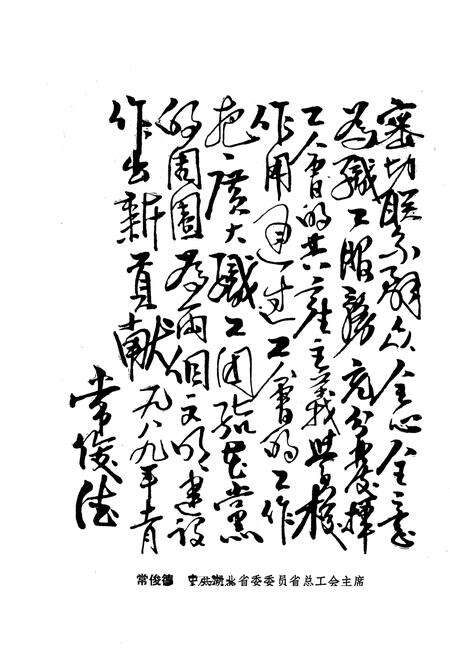 密切联系群众全心全意
为职工服务充分发挥
工会的共产主义学校
作用通过工会的工作
把广大职工团结在党
的周围为两个文明建设
作出新贡献
一九八九年十月
常俊德
常俊德 中共湖北省委委员省总工会主席